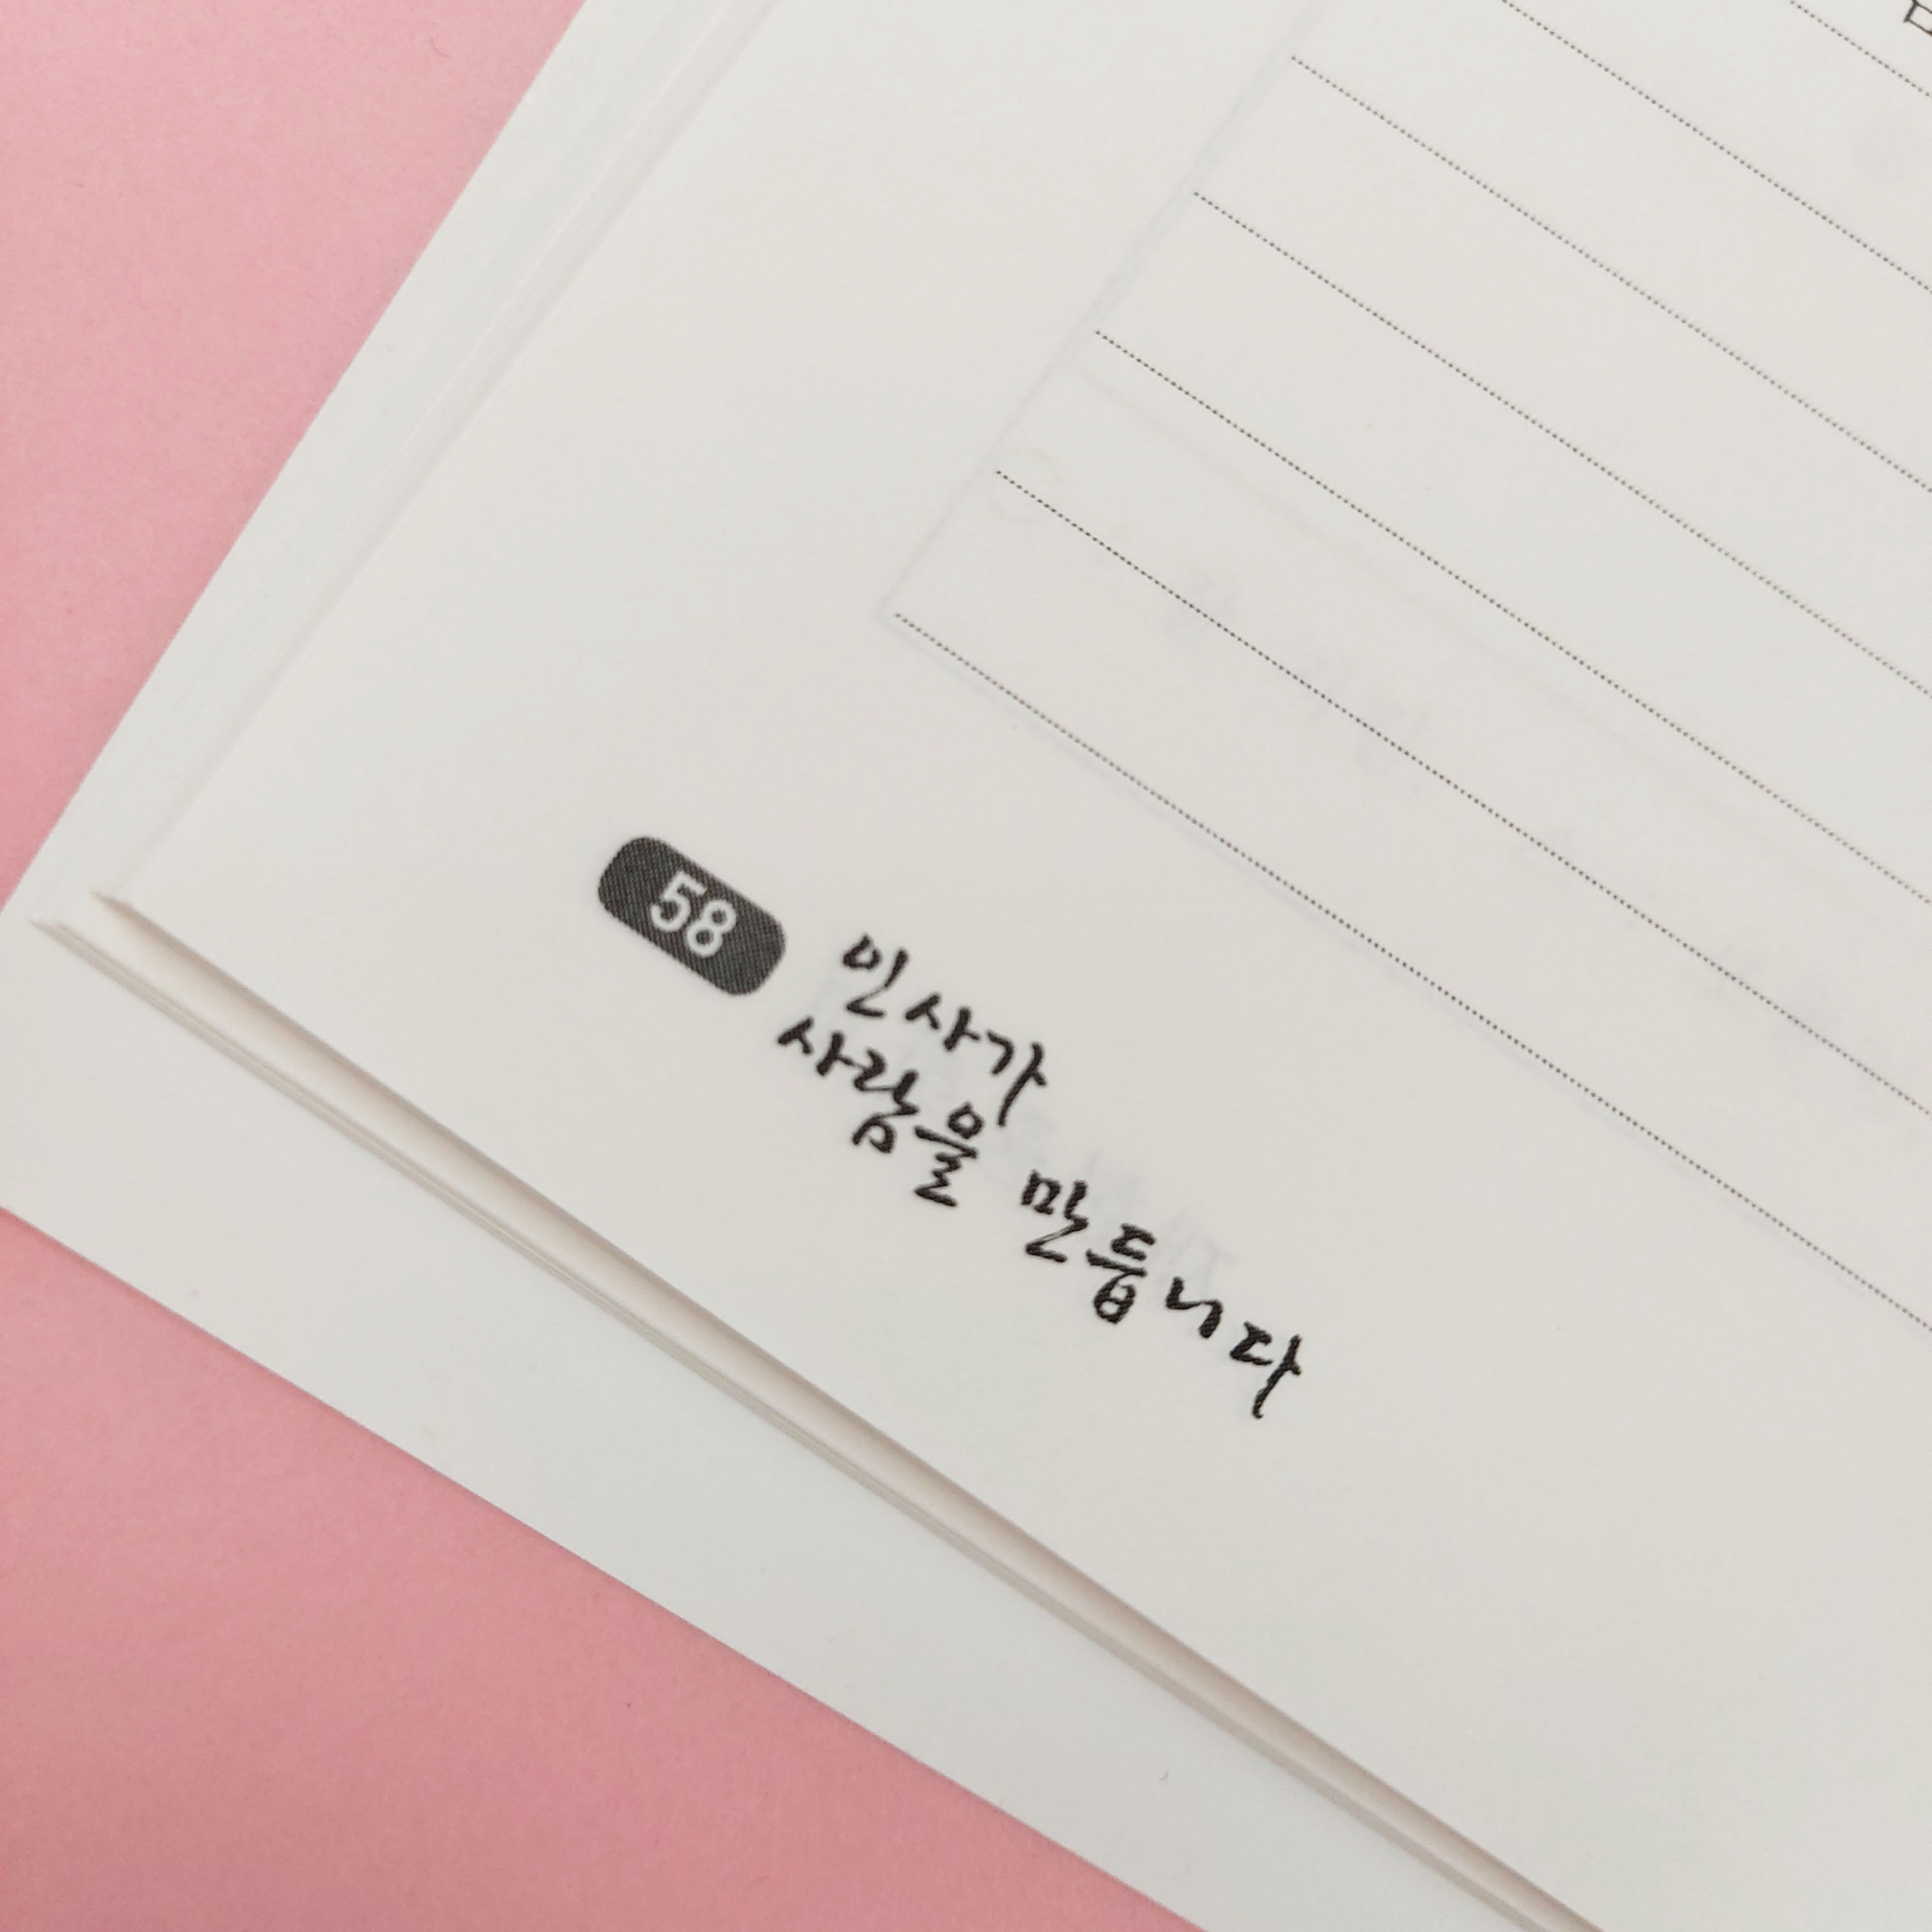 58 인사가
사람을 만듭니다